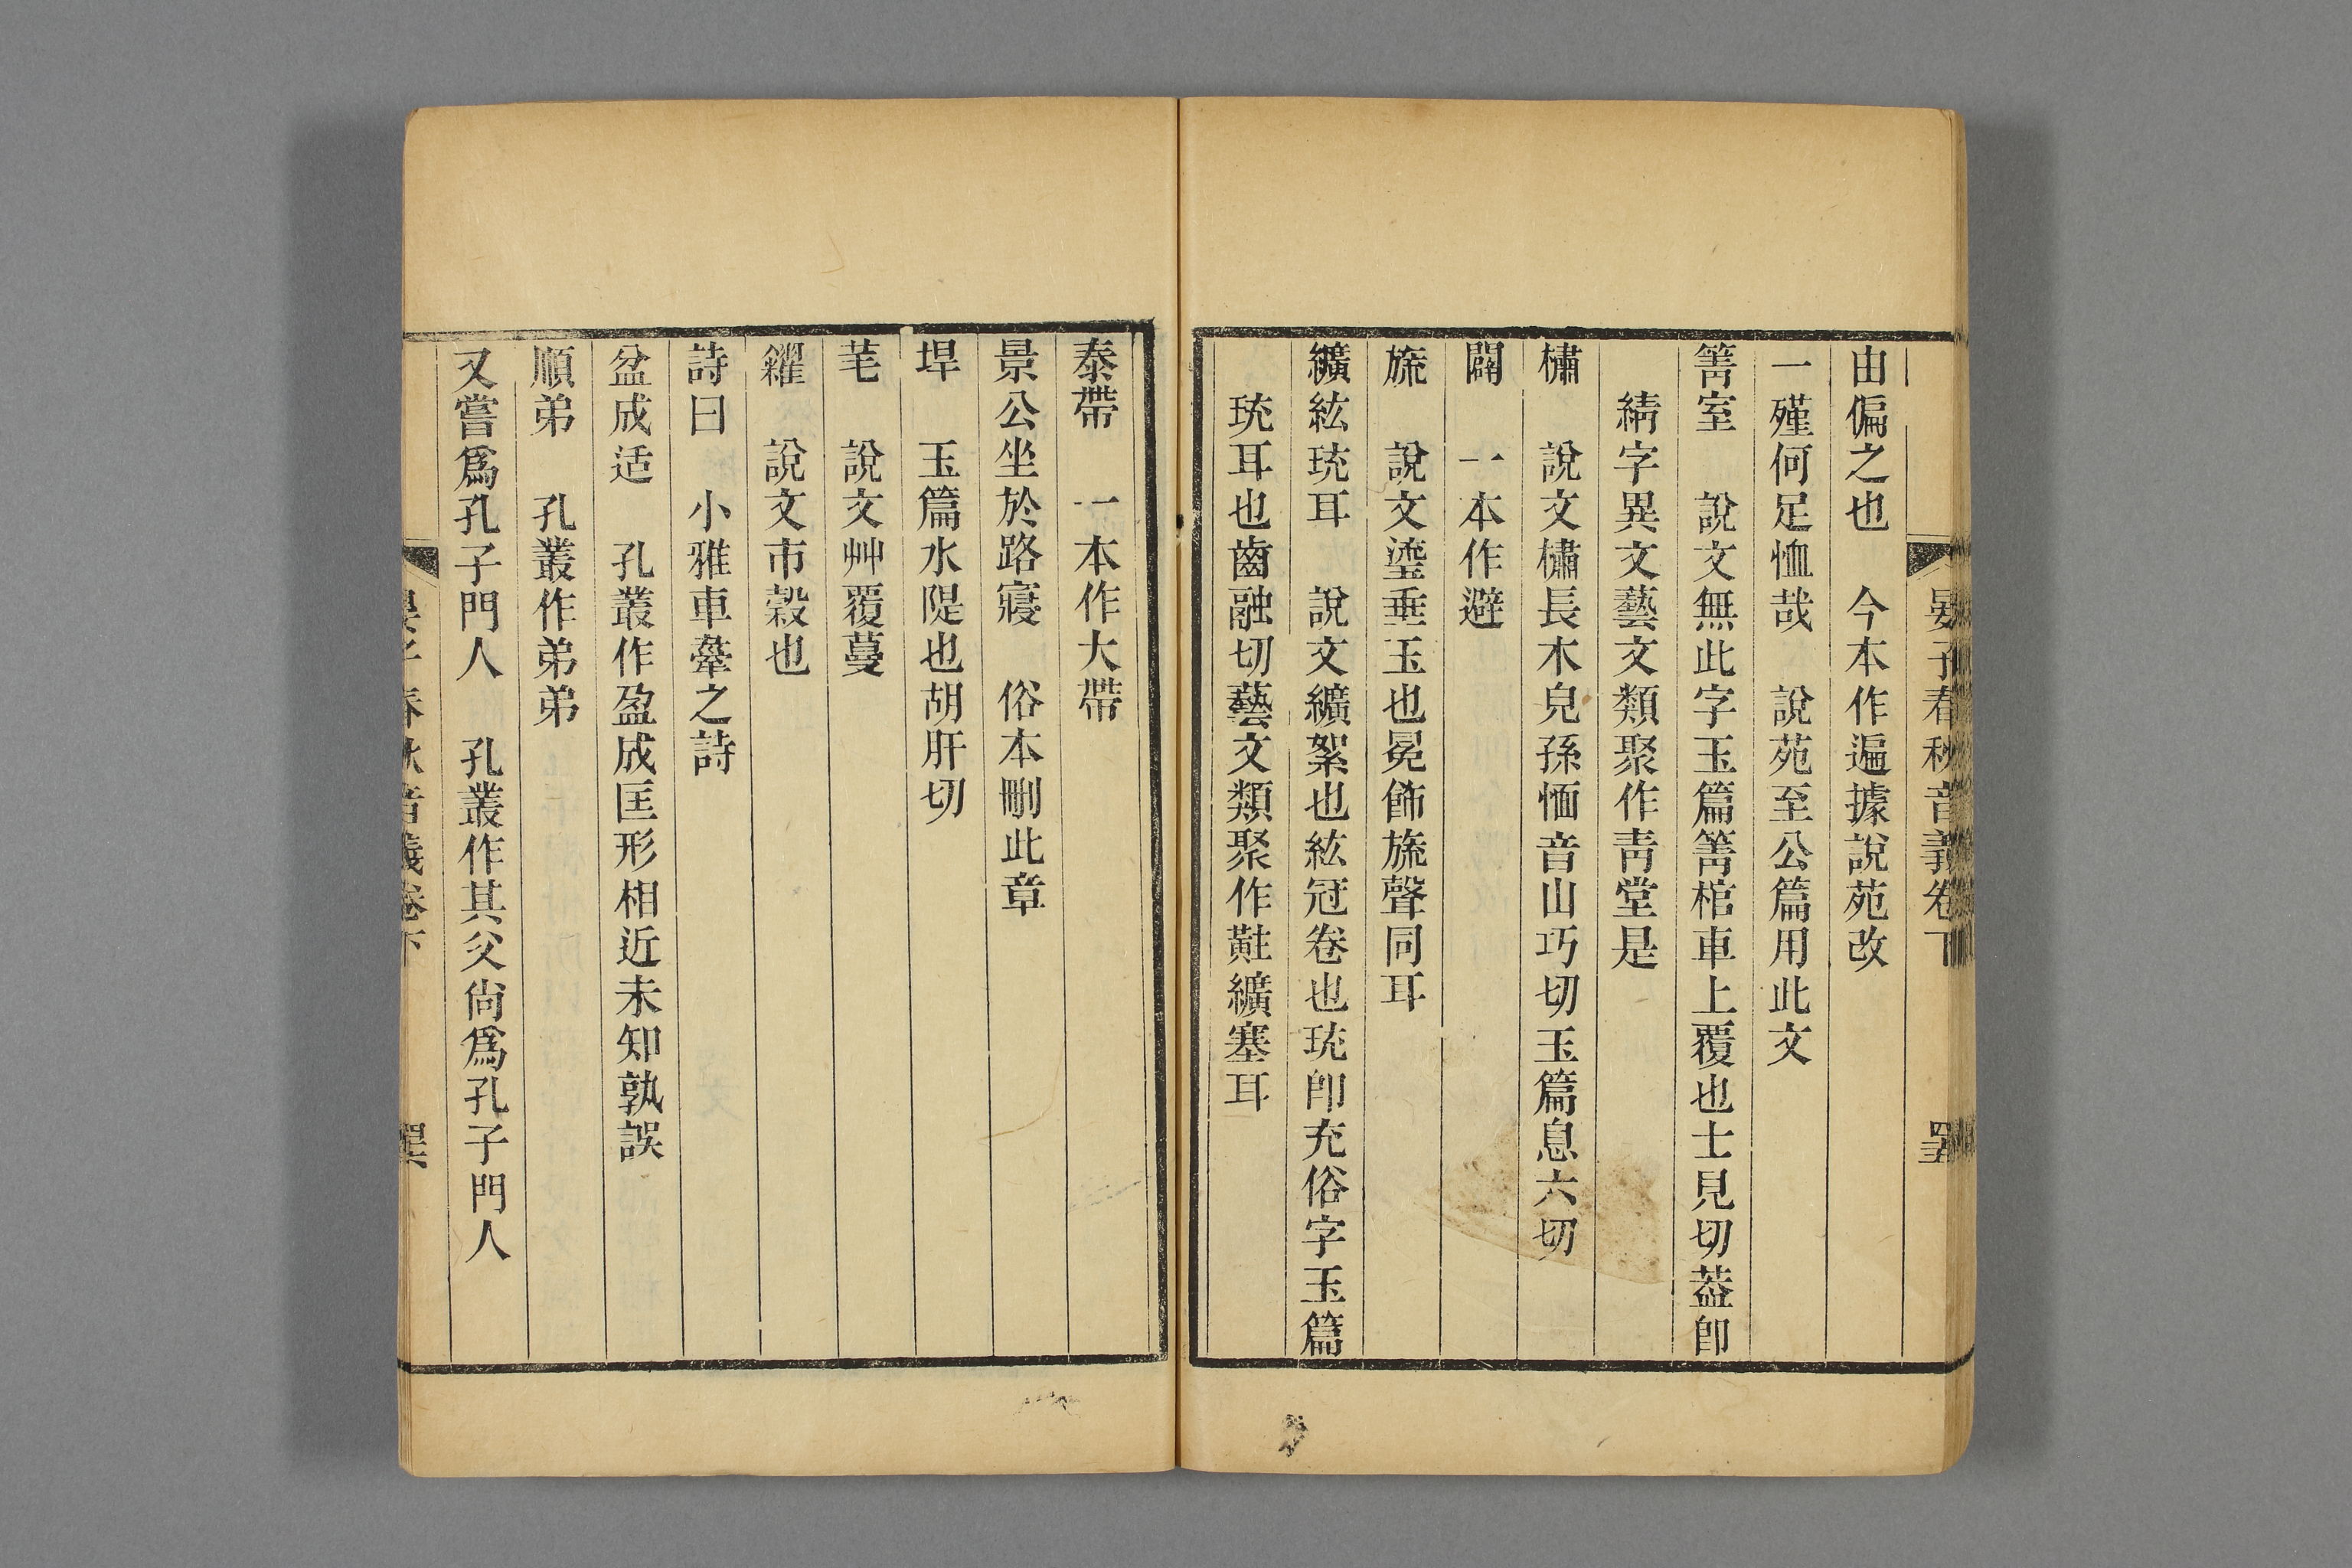 晏子春秋音義卷下
由偏之也　今本作遍據說苑改
一殣何足恤哉　說苑至公篇用此文
箐室　說文無此字玉篇箐棺車上覆也士見切葢卽
綪字異文藝文類聚作靑堂是
橚　說文橚長木皃孫愐音山巧切玉篇息六切
闢　一本作避
旒　說文瑬垂玉也冕飾旒聲同耳
纊紘珫耳　說文纊絮也紘冠卷也珫卽充俗字玉篇
珫耳也齒融切藝文類聚作黈纊塞耳
泰帶　一本作大帶
景公坐於路寢　俗本刪此章
垾　玉篇水隄也胡肝切
芼　說文艸覆蔓
糴　說文市榖也
詩曰　小雅車舝之詩
盆成适　孔叢作盈成匡形相近未知孰誤
順弟　孔叢作弟弟
又嘗爲孔子門人　孔叢作其父尙爲孔子門人
晏子春秋音義卷下